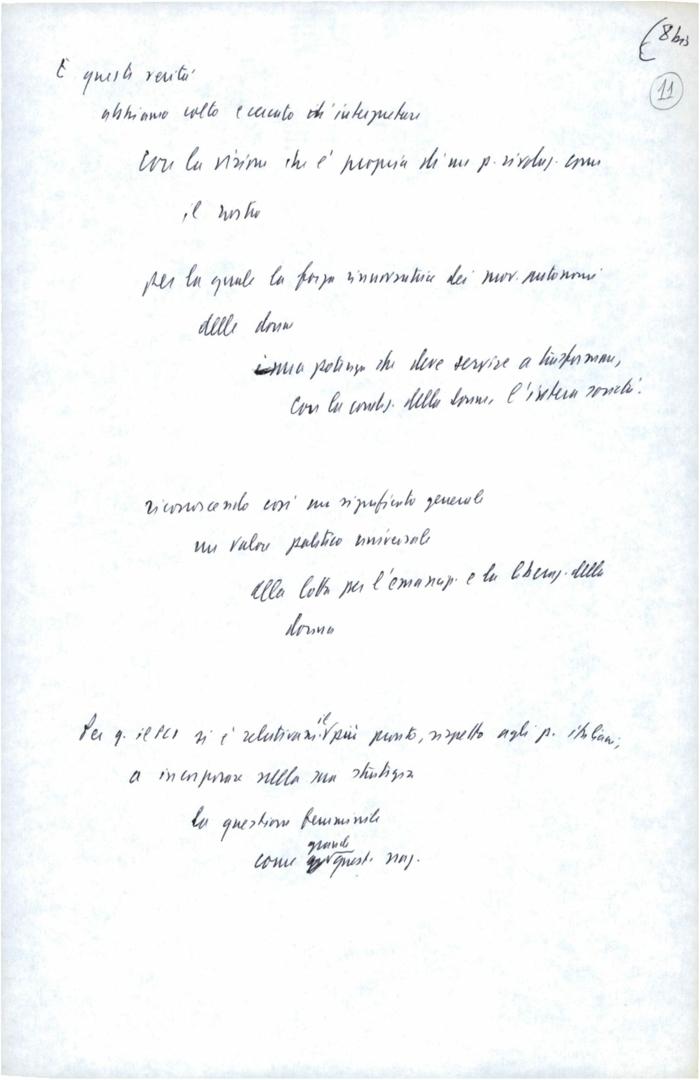 (8 bis
11
È questa verità
abbiamo colto e cercato di interpretare
con la visione che è propria di un p. rivoluz. come
il nostro
per la quale la forza innovatrice dei mov. autonomi
delle donne
è una potenza che deve servire a trasformare,
con la condiz. della donna, l'intera società.
riconoscendo così un significato generale
un valore politico universale
alla lotta per l'emancip. e la liberaz. della
donna
Per q. il PCI si è relativam. il più pronto, rispetto agli p. italiani,
a incorporare nella sua strategia
la questione femminile
come grande quest. naz.